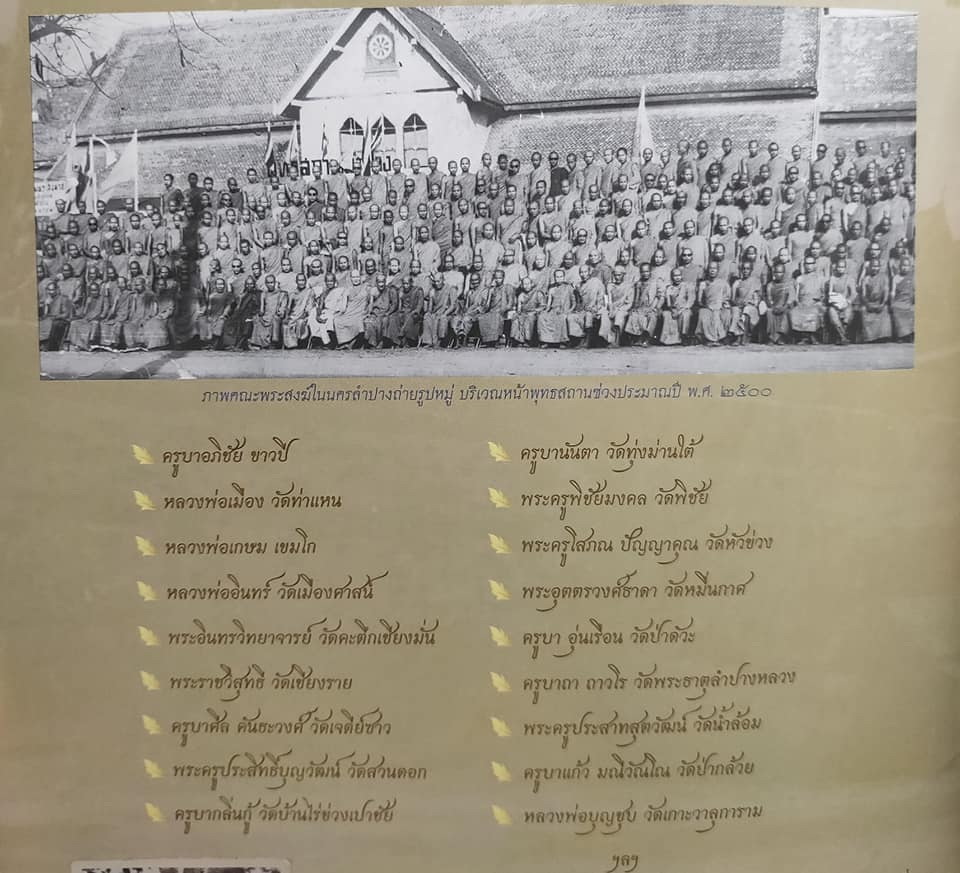 ภาพคณะพระสงฆ์ในนครลำปางถ่ายรูปหมู่ บริเวณหน้าพุทธสถานช่วงประมาณปี พ.ศ. ๒๕๐๐
ครูบาอภิชัย ขาวปี
หลวงพ่อเมือง วัดท่าแหน
หลวงพ่อเกษม เขมโก
หลวงพ่ออินทร์ วัดเมืองศาสน์
พระอินทรวิทยาจารย์ วัดคะตึกเชียงมั่น
พระราชวิสุทธิ วัดเชียงราย
ครูบาศีล คันธะวงศ์ วัดเจดีย์ซาว
พระครูประสิทธิ์บุญวัฒน์ วัดสวนดอก
ครูบากลิ่นกู้ วัดบ้านไร่ข่วงเปาชัย
ครูบานันตา วัดทุ่งม่านใต้
พระครูพิชัยมงคล วัดพิชัย
พระครูโสภณ ปัญญาคุณ วัดหัวข่วง
พระอุตตรวงศ์ธาดา วัดหมื่นกาศ
ครูบา อุ่นเรือน วัดป่าดัวะ
ครูบาถา ถาวโร วัดพระธาตุลำปางหลวง
พระครูประสาทสุตวัฒน์ วัดน้ำล้อม
ครูบาแก้ว มณีวัณโณ วัดป่ากล้วย
หลวงพ่อบุญชุบ วัดเกาะวาลุการาม
ฯลฯ